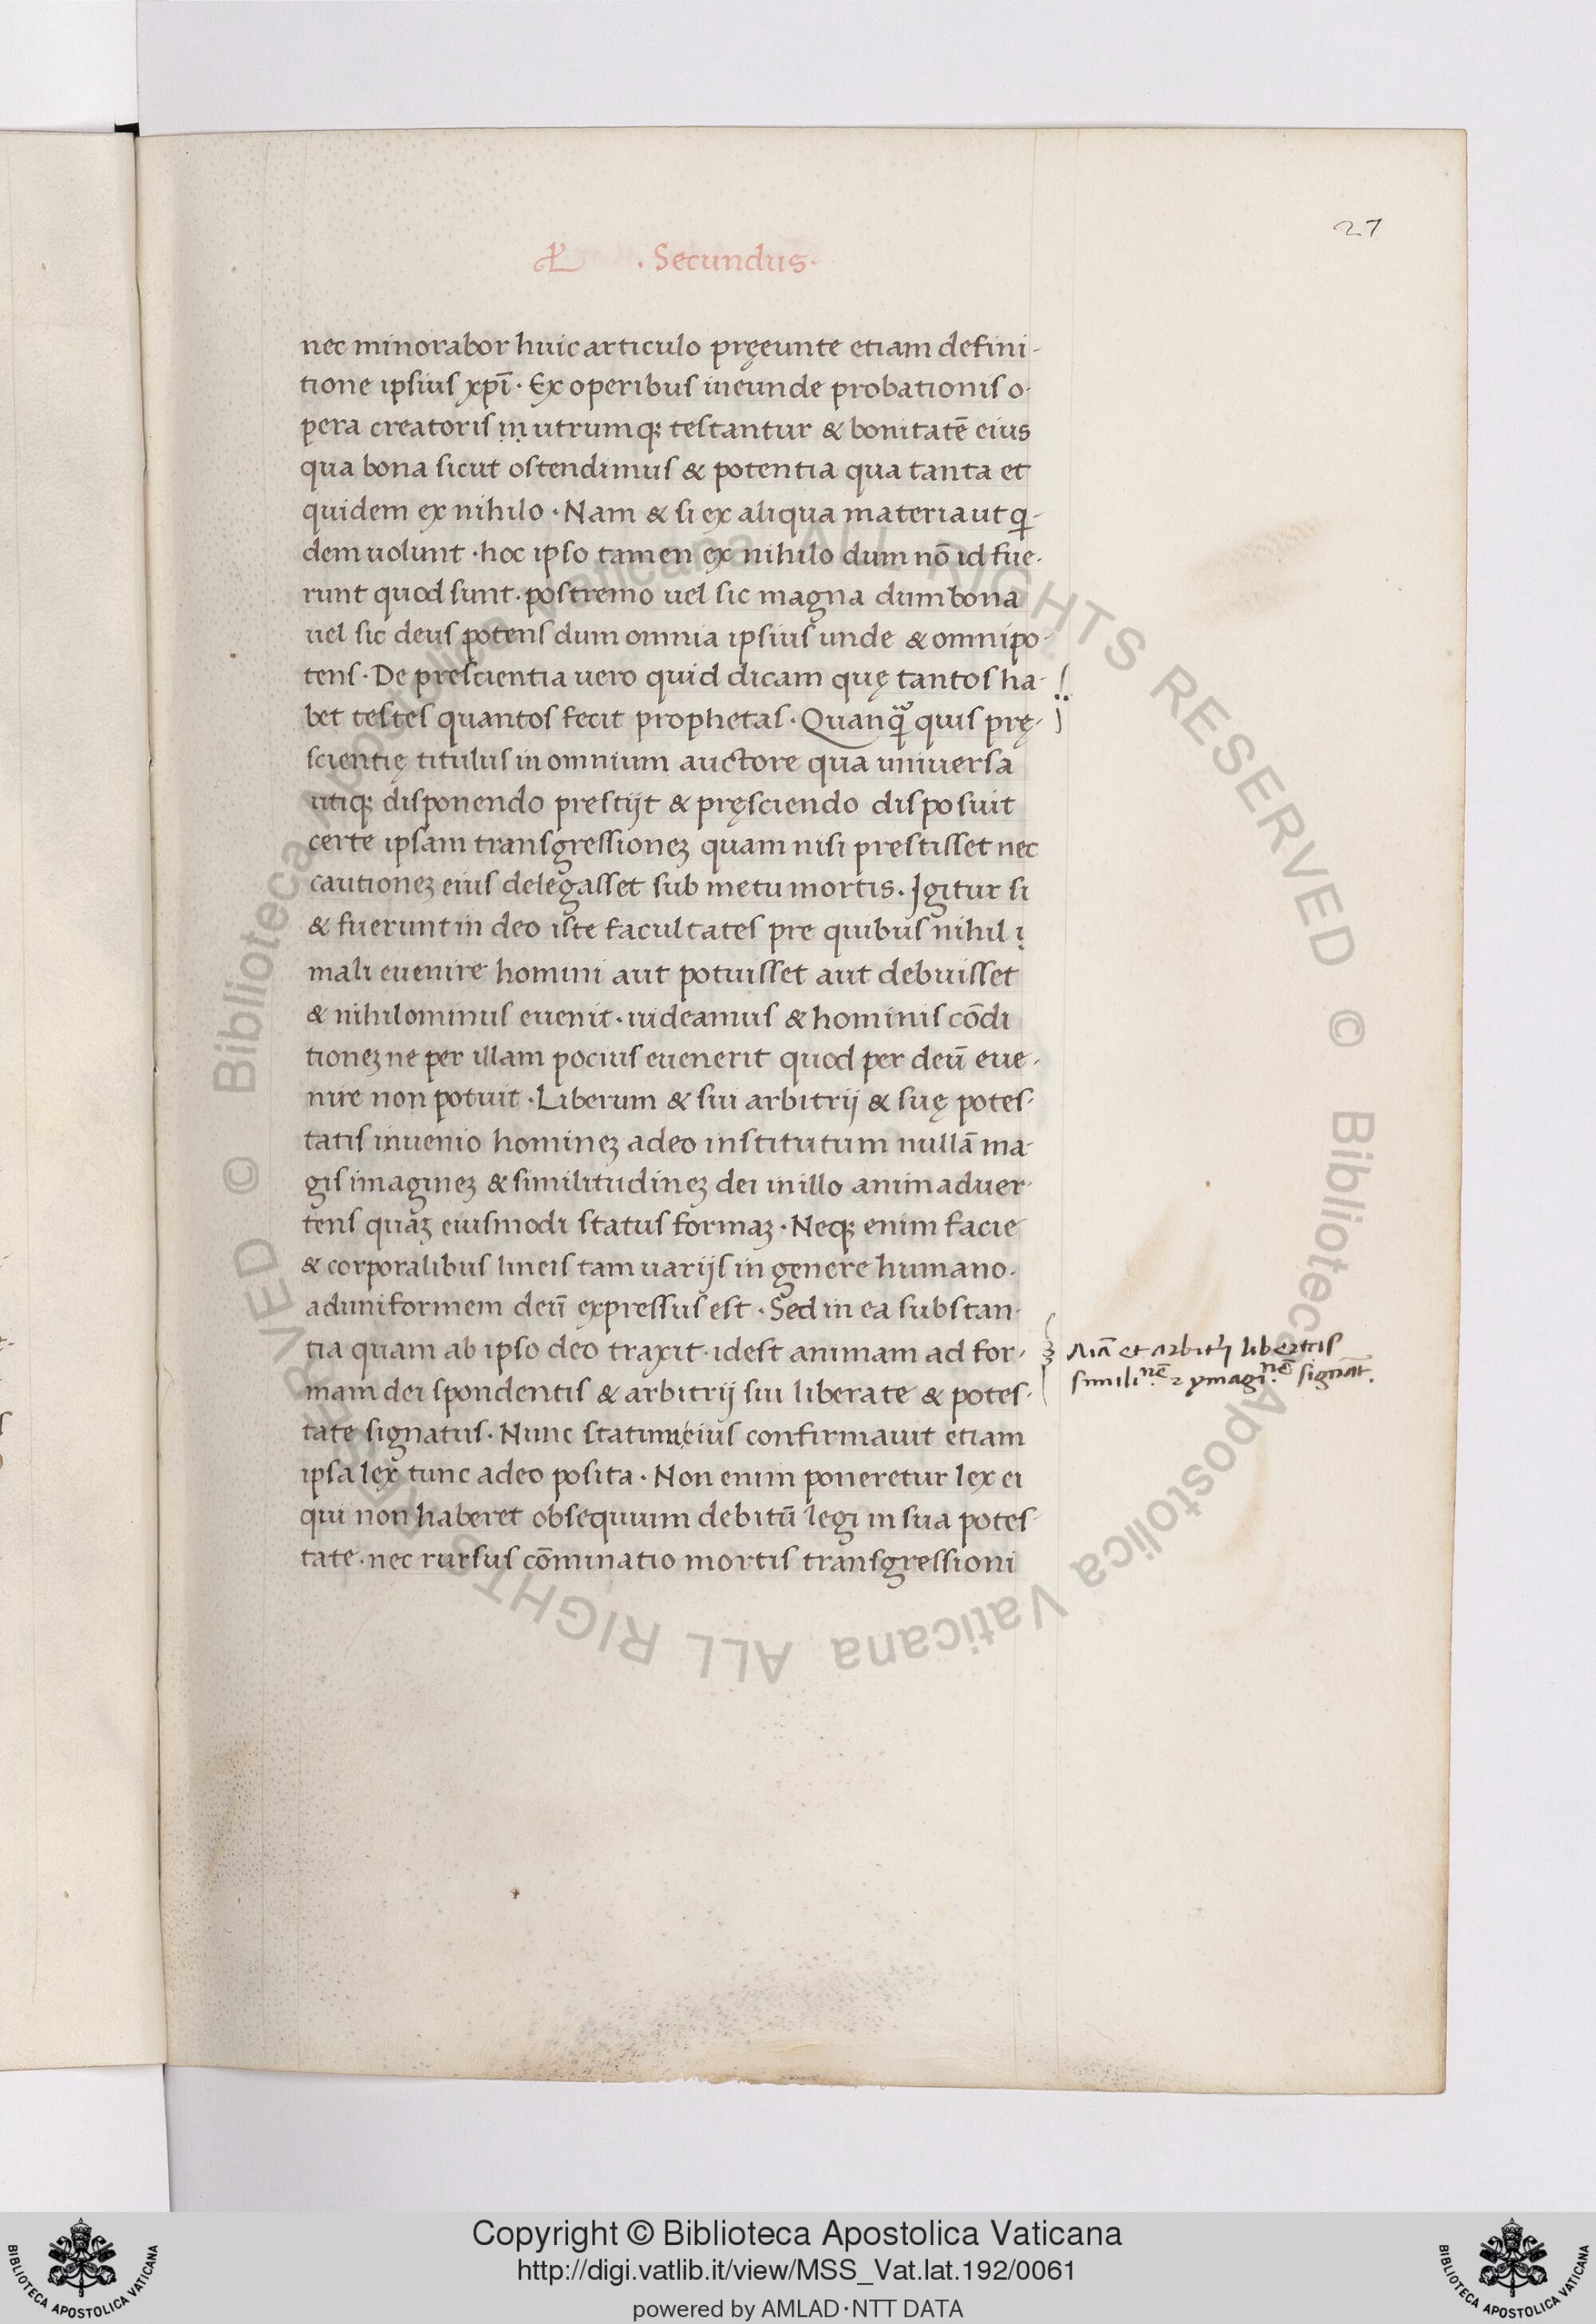 27
. Secundus.
nec minorabor huic articulo pręeunte etiam defini-
tione ipsius xpī· Ex operibus ineunde probationis o-
pera creatoris in utrumq; testantur & bonitatē eius
qua bona sicut ostendimus & potentia qua tanta et
quidem ex nihilo · Nam & si ex aliqua materia ut qi-
dem uolunt · hoc ipso tamen ex nihilo dum nō id fue-
runt quod sunt · postremo uel sic magna dum bona
uel sic deus potens dum omnia ipsius unde & omnipo-
tens · De prescientia uero quid dicam quę tantos ha-
bet testes quantos fecit prophetas · Quanq̃ quis prę-
scientię titulus in omnium auctore qua uniuersa
utiq; disponendo prestijt & pręsciendo disposuit
certe ipsam transgressionez quam nisi prestisset nec
cautionez eius delegasset sub metu mortis · Igitur si
& fuerunt in deo iste facultates pre quibus nihil i
mali euenire homini aut potuisset aut debuisset
& nihilominus euenit · uideamus & hominis cōdi
tionez ne per illam pocius euenerit quod per deū eue-
nire non potuit · Liberum & sui arbitrij & suę potes-
tatis inuenio hominez a deo institutum nullā ma-
gis imaginez & similitudinez dei in illo animaduer-
tens quaz eiusmodi status formaz · Neq; enim facie
& corporalibus lineis tam uarijs in genere humano·
ad uniformem deū expressus est · Sed in ea substan-
tia quam ab ipso deo traxit · idest animam ad for-
mam dei spondentis & arbitrij sui liberate & potes-
tate signatus · Nunc statum eius confirmauit etiam
ipsa lex tunc a deo posita · Non enim poneretur lex ei
qui non haberet obsequium debitū legi in sua potes-
tate · nec rursus cōminatio mortis transgressioni
et arbitrij
signat.
Copyright © Biblioteca Apostolica Vaticana
http://digi.vatlib.it/view/MSS_Vat.lat.192/0061
powered by AMLAD·NTT DATA
BIBLIOTECA APOSTOLICA VATICANA
BIBLIOTECA APOSTOLICA VATICANA
© Biblioteca Apostolica Vaticana ALL RIGHTS RESERVED © Biblioteca Apostolica Vaticana ALL RIGHTS RESERVED